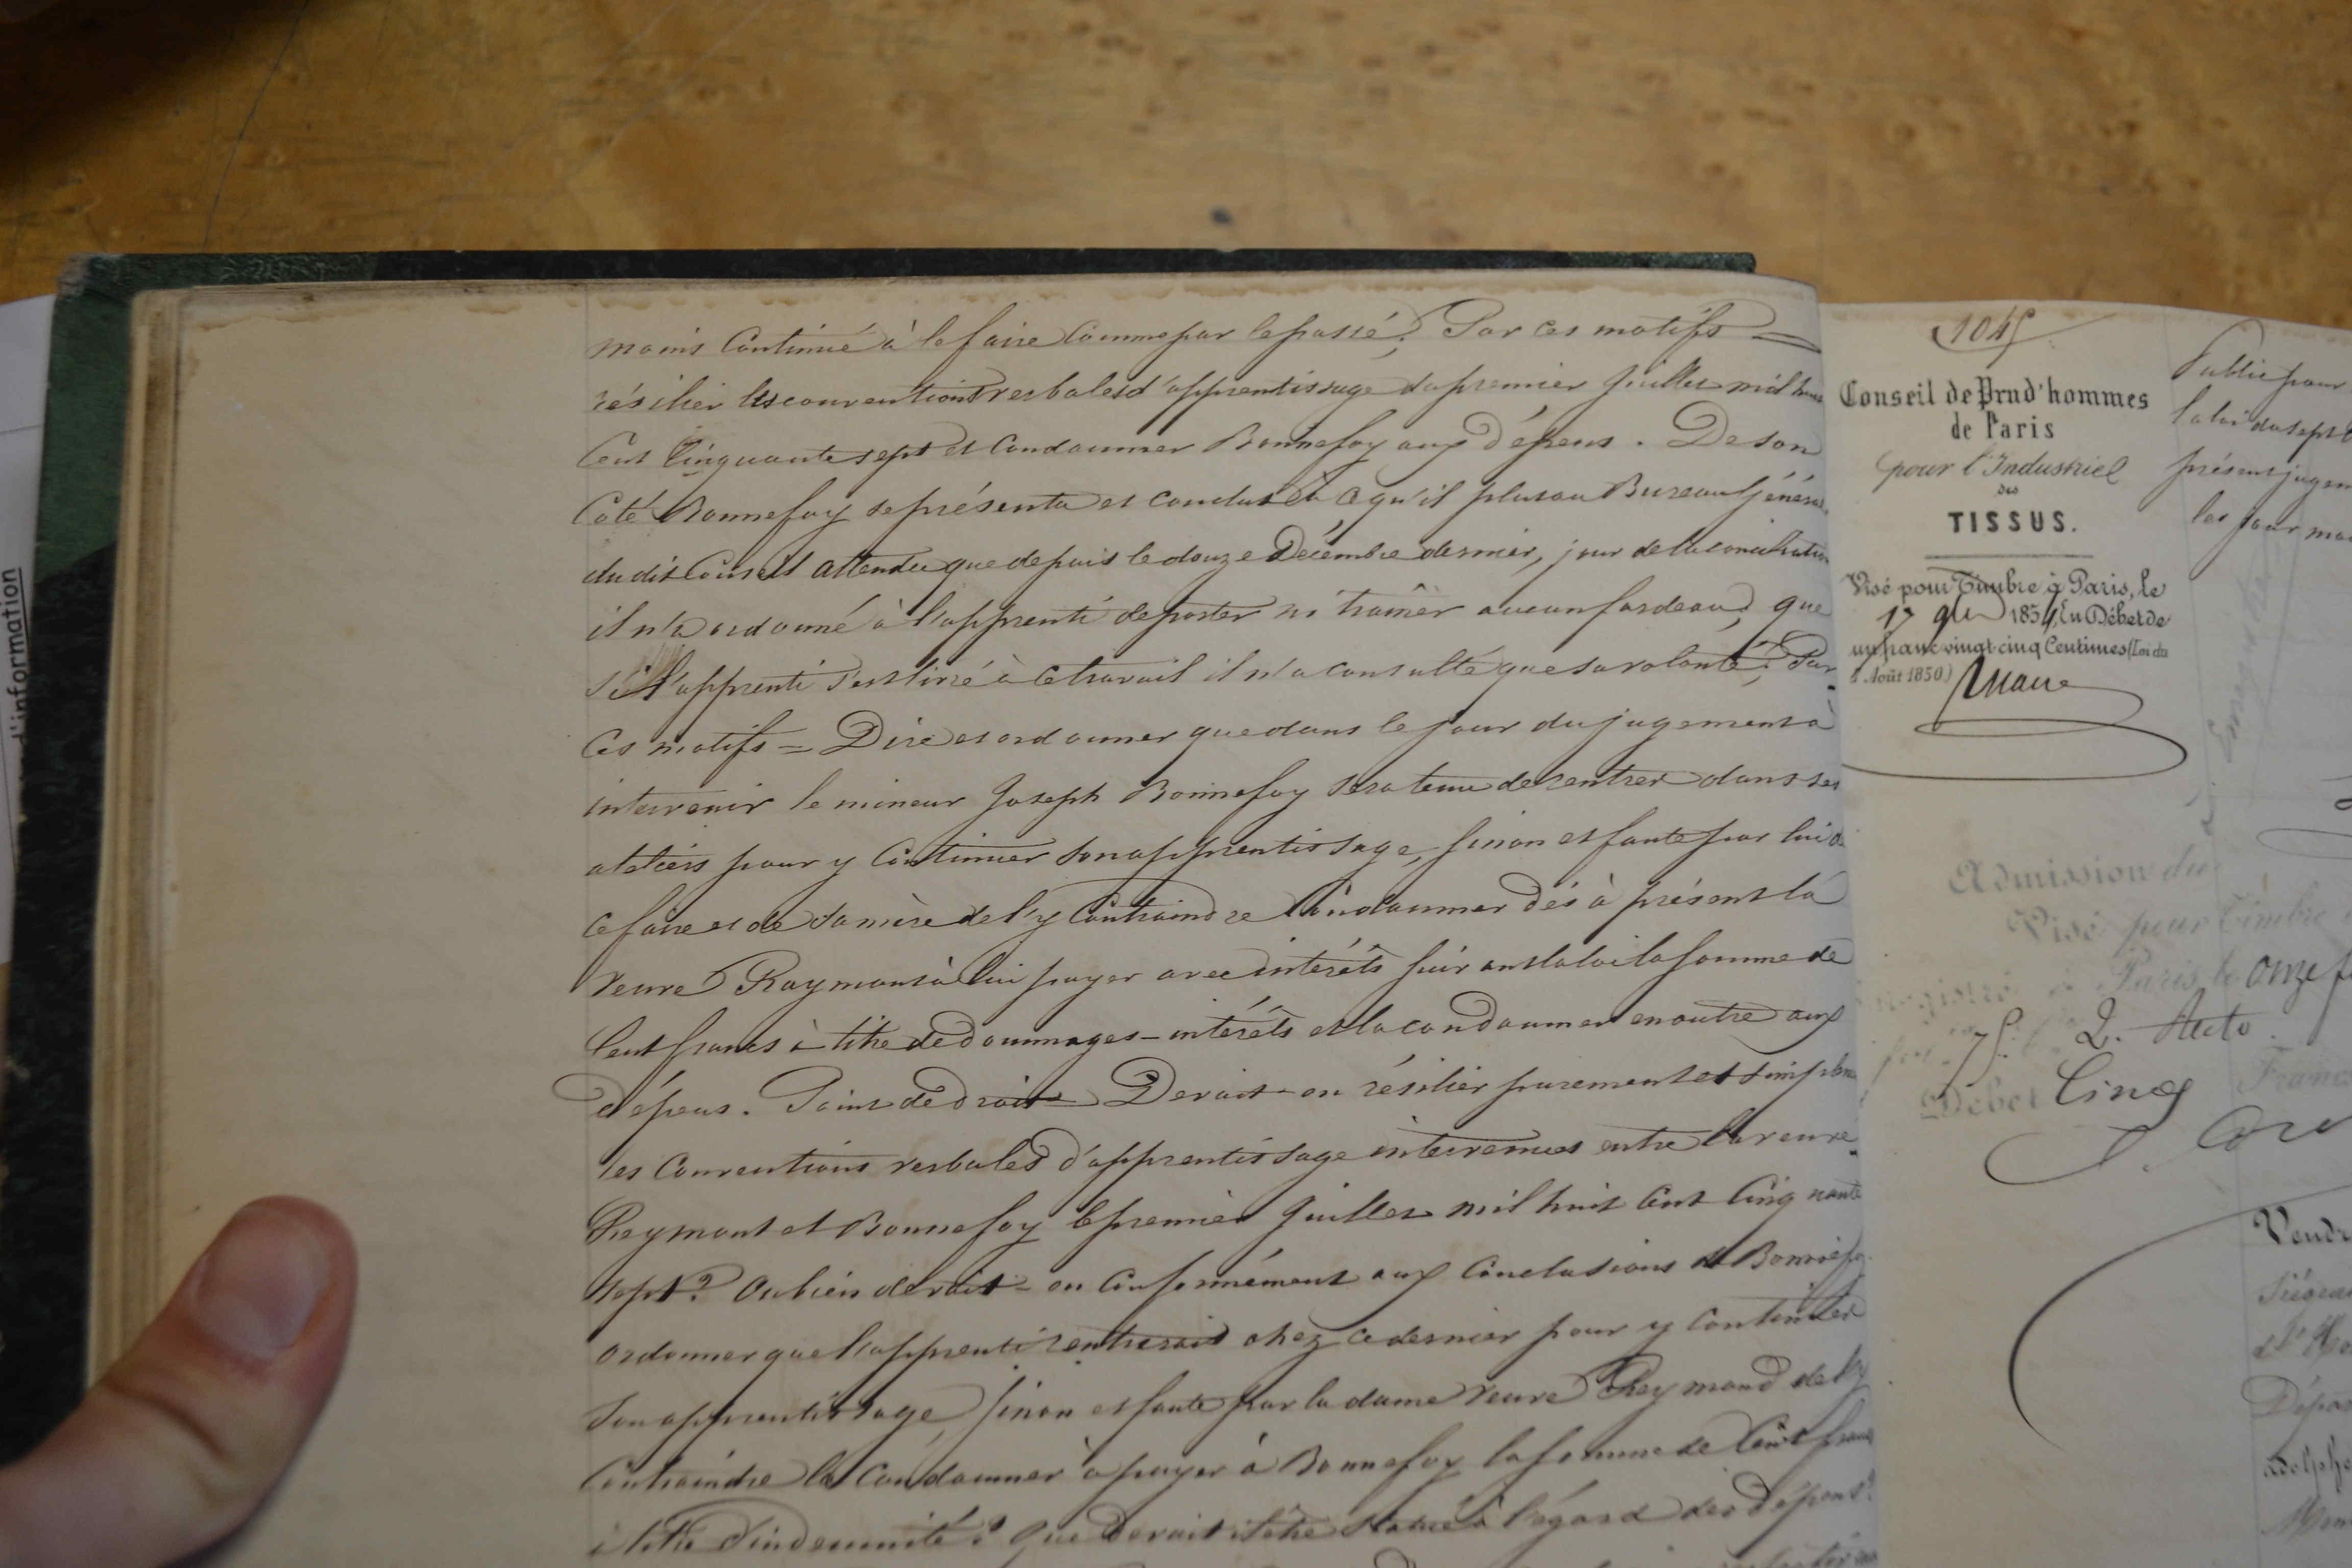 moins continué à le faire comme par le passé; Par ces motifs =
résilier les conventions verbales d'apprentissage du premier Juillet mil huit
Cent Cinquante sept et condamner Bonnefoy aux dépens. De son
Coté Bonnefoy se présenta et conclut à ce qu'il plut au Bureau Général
du dit Conseil attendu que depuis le douze Décembre dernier, jour de la conciliation
il n'a ordonné à l'apprenti de porter ni trainer aucun fardeau; que
si l'apprenti s'est livré à ce travail il n'a consulté que sa volonté; Par
Ces motifs = Dire et ordonner que dans le jour du jugement à
intervenir le mineur Joseph Bonnefoy sera tenu de rentrer dans ses
ateliers pour y continuer son apprentissage, sinon et faute par lui de
ce faire et de sa mère de l'y contraindre Condamner dès à présent la
veuve Raymont à lui payer avec intérêts suivant la loi la somme de
Cent francs à titre de dommages-intérêts et la condamner en outre aux
dépens. Point de droit = Devait-on résilier purement et simplem
les Conventions verbales d'apprentissage intervenues entre la veuve
Reymont et Bonnefoy le premier Juillet mil huit cent cinquante
sept? Ou bien devait-on conformément aux conclusions de Bonnefoy
ordonner que l'apprenti rentrerait chez ce dernier pour y continuer
son apprentissage, sinon et faute par la dame veuve Reymond de l'y
contraindre la condamner à payer à Bonnefoy la somme de Cent francs
à titre d'indemnité? Que devait-il être statué à l'égard des dépens?
d'information
104
Conseil de Prud'hommes
de Paris
pour l'Industriel
des
TISSUS.
Visé pour Timbre à Paris, le
17 1854, En Débet de
un franc vingt cinq Centimes (Loi du
Août 1850)
Publié pour
la loi du sept
présent jugem
les jour moi
Admission du
Visé pour Timbre
Paris le onze
75. 2. Auto.
Débet Cinq Franc
Vendr
Siégea
Dépar
adolphe